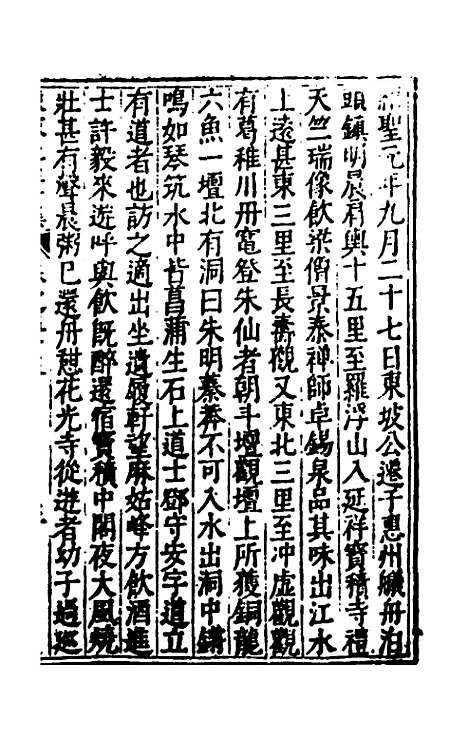 聖元年九月二十七日東坡公遷于惠州艤舟泊
頭鎮明晨肩輿十五里至羅浮山入延祥寶積寺禮
天竺瑞像飲梁僧景泰禪師卓錫泉品其味出江水
上遠甚東三里至長壽觀又東北三里至冲虛觀觀
有葛稚川丹竃登朱仙者朝斗壇觀壇上所獲銅龍
六魚一壇北有洞曰朱明蓁莽不可入水出洞中鏘
鳴如琴筑水中皆菖蒲生石上道士鄧守安字道立
有道者也訪之適出坐遺履軒望麻姑峰方飲酒進
士許毅來遊呼與飲既醉還宿寶積中閣夜大風燒
壯甚有聲晨粥已還舟憇花光寺從遊者幼子過巡